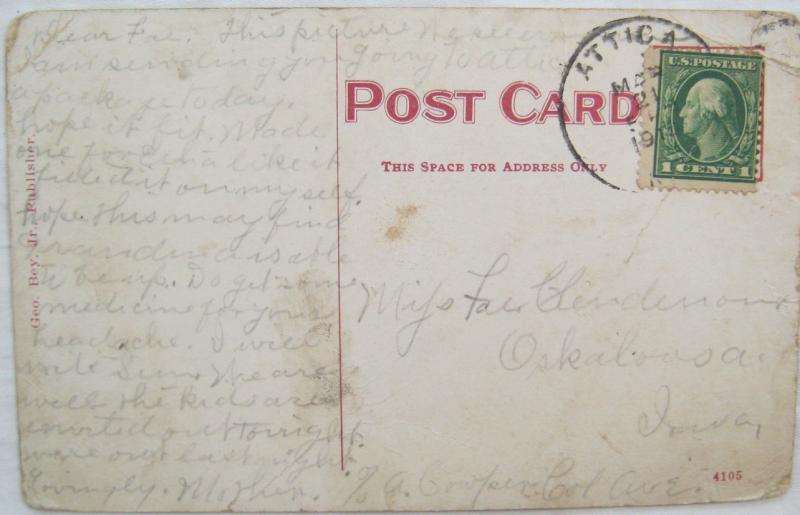 Dear Fae. This picture we see
I am sending you going to Attic
a package today.
hope it fit. Made
one for Edna like it
fitted it on myself.
hope this may find
Grandma is able
to be up. Do get some
medicine for your
headache. I will
write Sun. We are
well the kids are
invited out tonight
were out last night.
Lovingly. Mother.
Geo. Bey, Jr., Publisher.
POST CARD
THIS SPACE FOR ADDRESS ONLY
ATTICA
MA
21
19
U.S. POSTAGE
1 CENT 1
Miss Fae Clendenon
Oskaloosa.
Iowa,
% A. Cooper. Col Ave.
4105